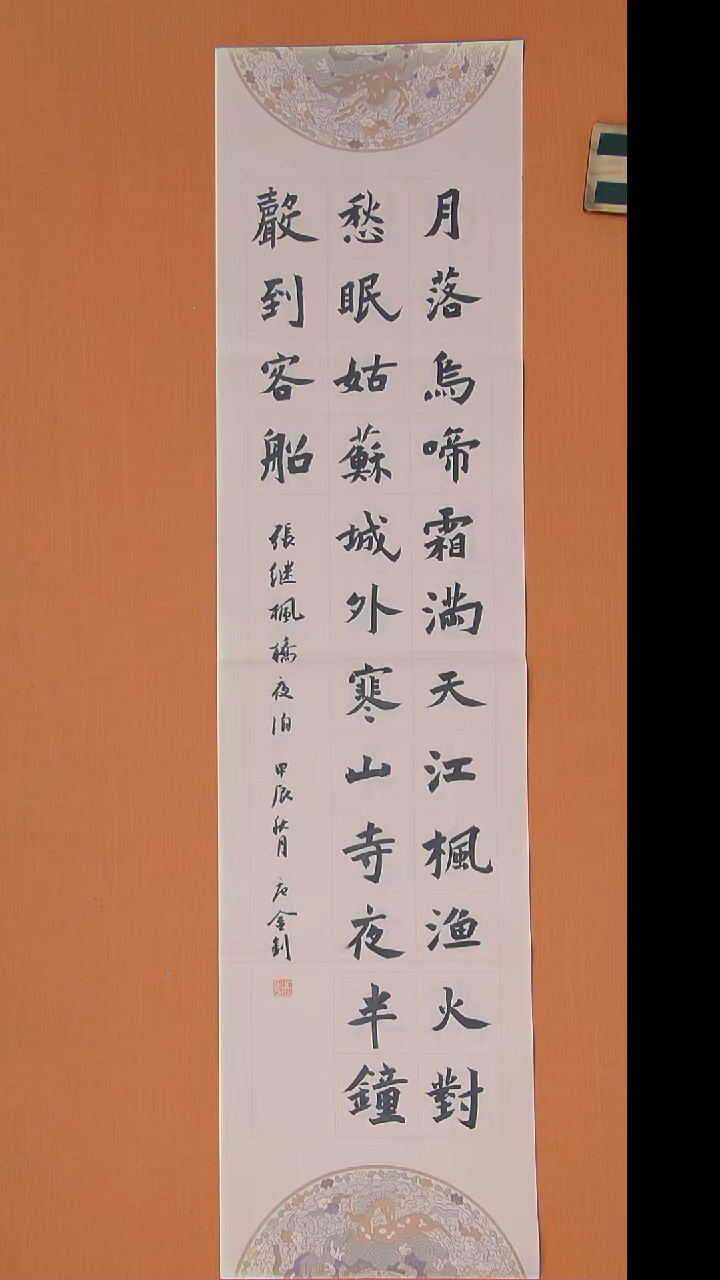 月落烏啼霜満天江楓渔火對
愁眠姑蘇城外寒山寺夜半鐘
聲到客船
張继楓橋夜泊 甲辰秋月 金釗